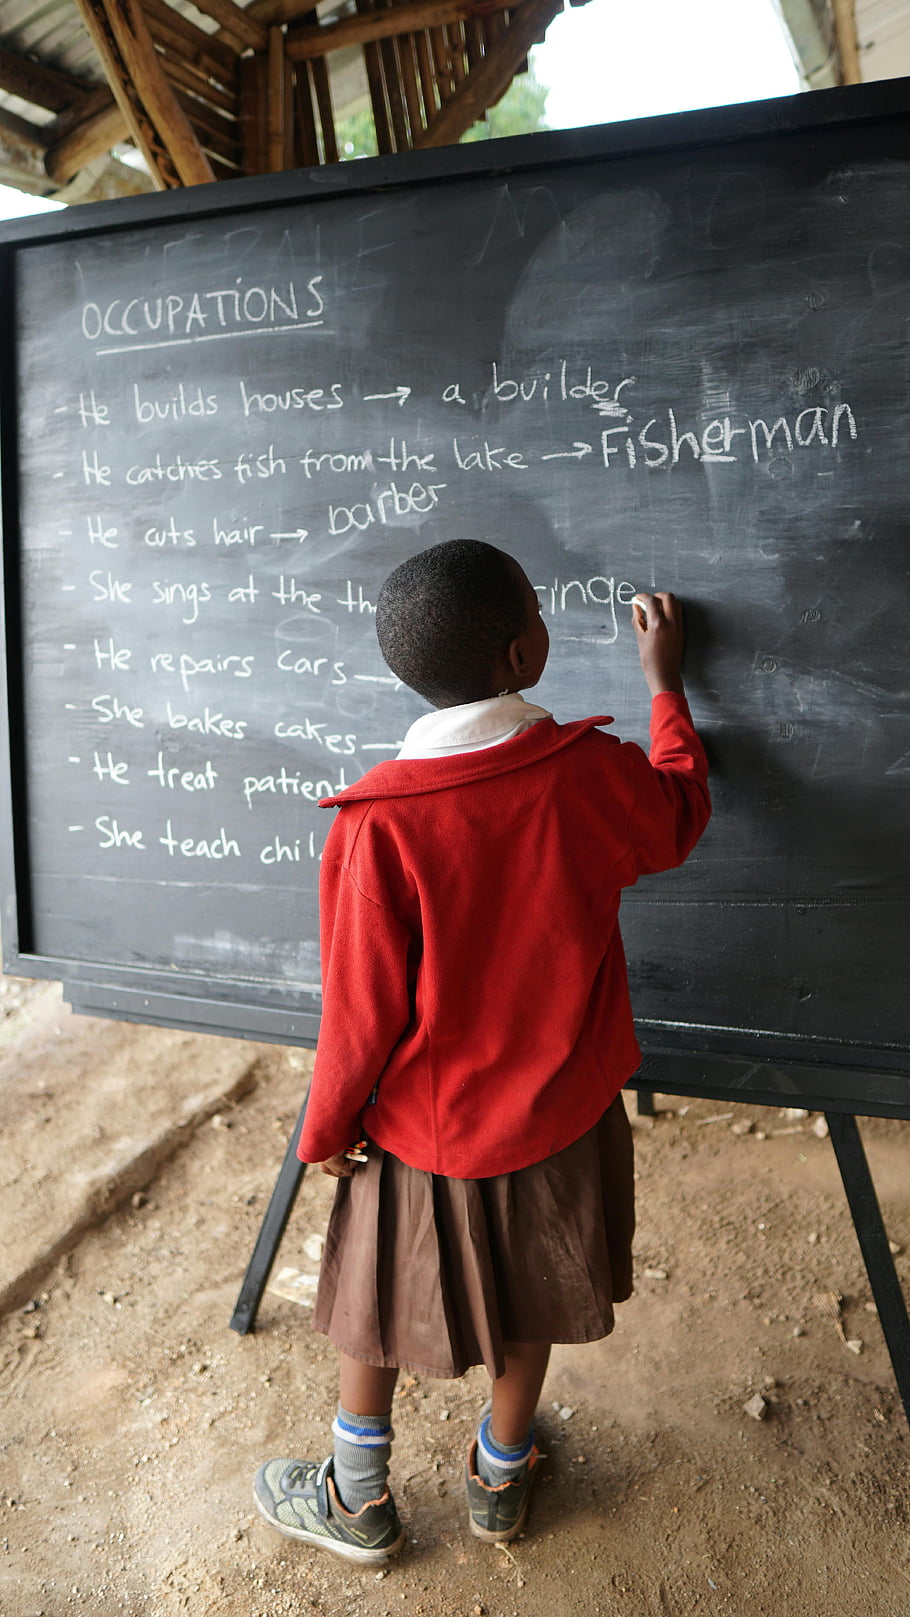 OCCUPATIONS
- He builds houses → a builder
- He catches fish from the lake → Fisherman
- He cuts hair → barber
- She sings at the
- He repairs cars →
- She bakes cakes
- He treat
- She teach